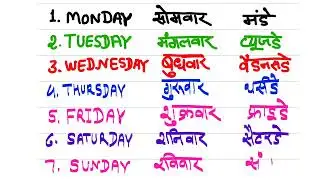 1. MONDAY सोमवार मंडे
2. TUESDAY मंगलवार ट्यूजडे
3. WEDNESDAY बुधवार वैडनसडे
4. THURSDAY गुरुवार थर्सडे
5. FRIDAY शुक्रवार फ्राइडे
6. SATURDAY शनिवार सैटरडे
7. SUNDAY रविवार सं